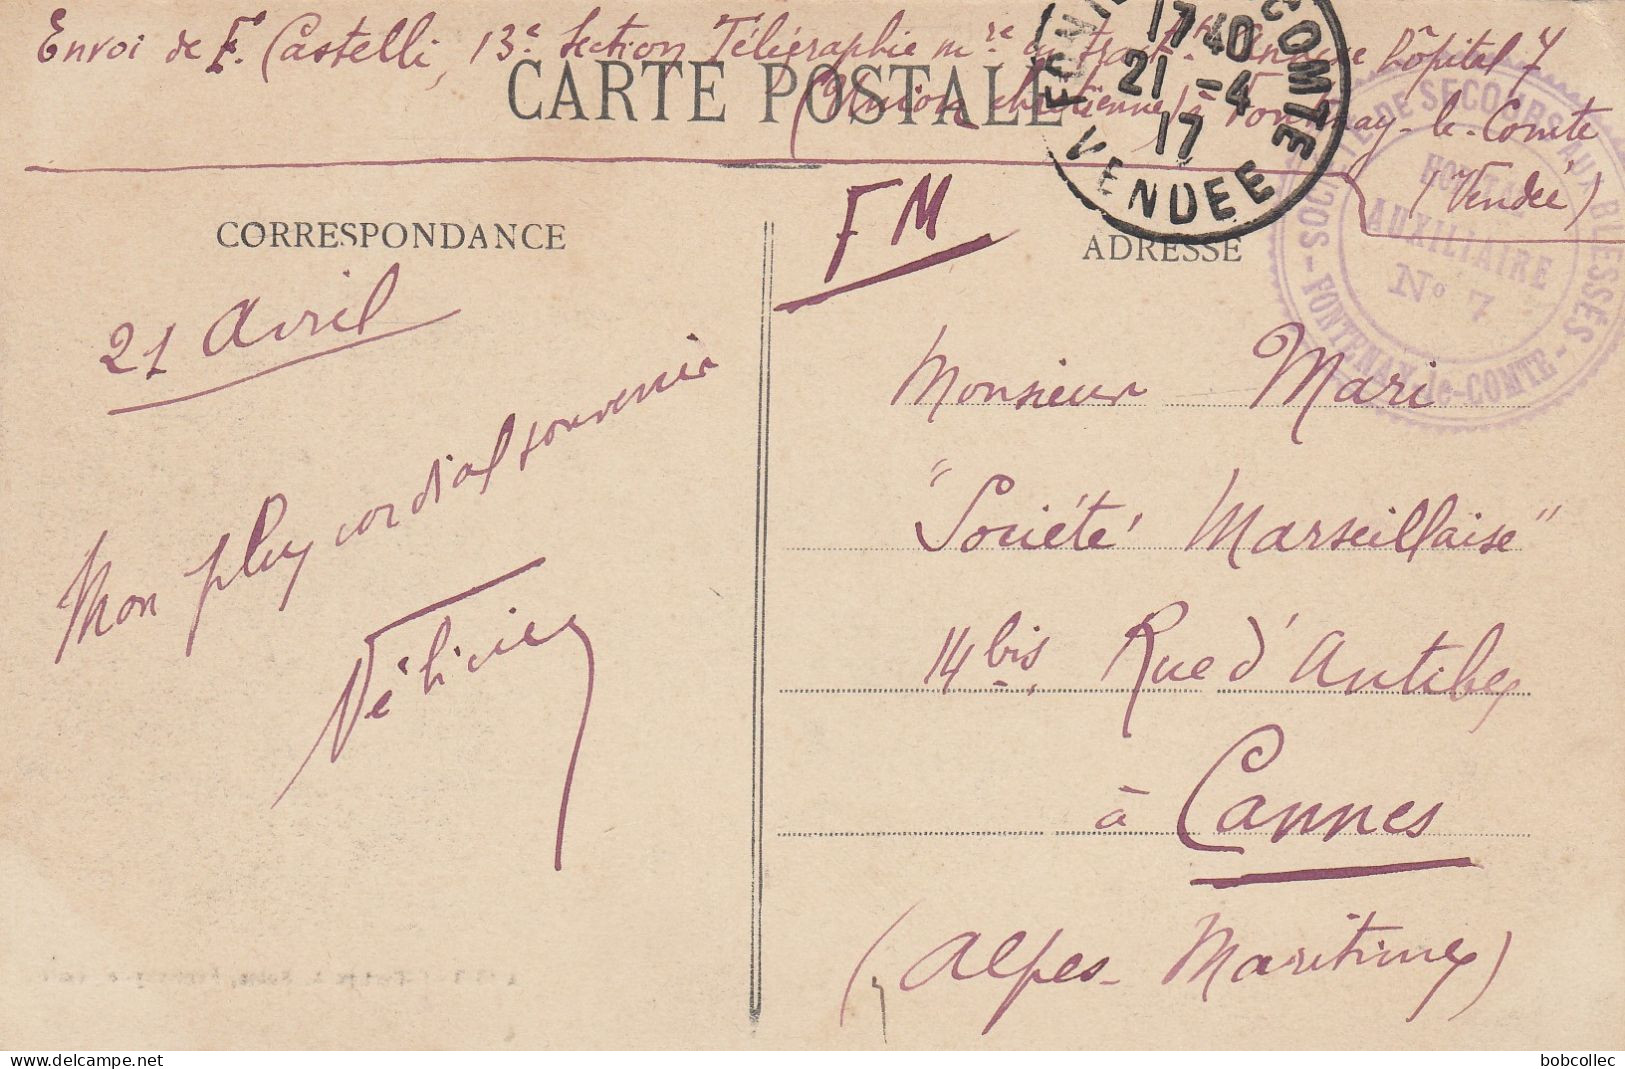 Envoi de F. Castelli, 13e Section Télégraphie mre en trait. Hôpital 7
(Union chrétienne) à Fontenay-le-Comte
(Vendée)
CARTE POSTALE
17 40
21 -4
17
COMTE
VENDEE
SOCIÉTÉ DE SECOURS AUX BLESSÉS
HOPITAL
AUXILIAIRE
No 7
FONTENAY-le-COMTE
CORRESPONDANCE
FM
ADRESSE
21 Avril
Mon plus cordial souvenir
Félicien
Monsieur Mari
"Société Marseillaise"
14 bis, Rue d'Antibes
à Cannes
(Alpes-Maritimes)
bobcollec